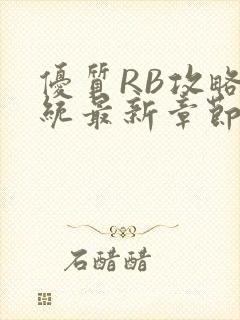 優質RB攻略
統最新章節
石醋醋